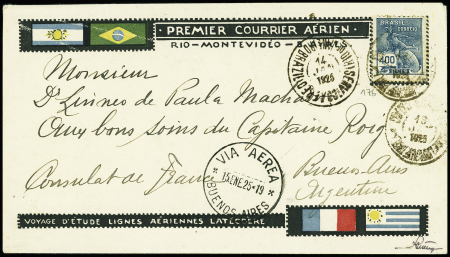 PREMIER COURRIER AÉRIEN
RIO-MONTEVIDÉO-
BRASIL
CORREIO
400
RÉIS
14
1925
176
Monsieur
Dr Linnes de Paula Machado
Aux bons soins du Capitaine Roig
13
1925
Consulat de France
Buenos Aires
Argentine
VIA AEREA
13 ENE 25-19
BUENOS AIRES
VOYAGE D'ÉTUDE LIGNES AÉRIENNES LATÉCOÈRE